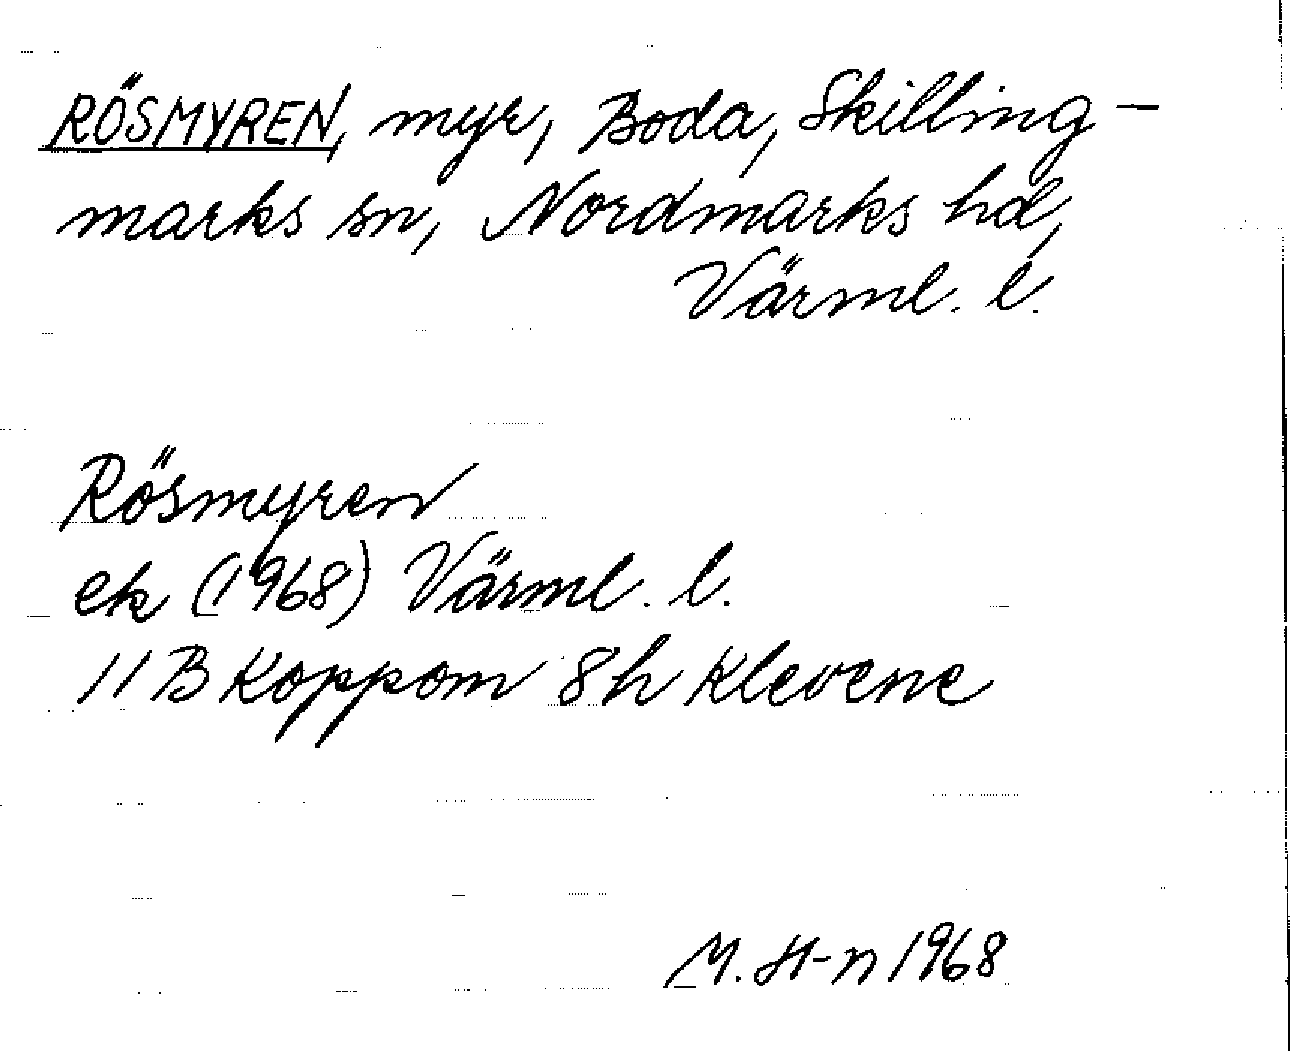 RÖSMYREN, myr, Boda, Skilling-
marks sn, Nordmarks hd,
Värml. l.
Rösmyren
ek (1968) Värml. l.
11 B Koppom 8h Klevene
M. H-n 1968